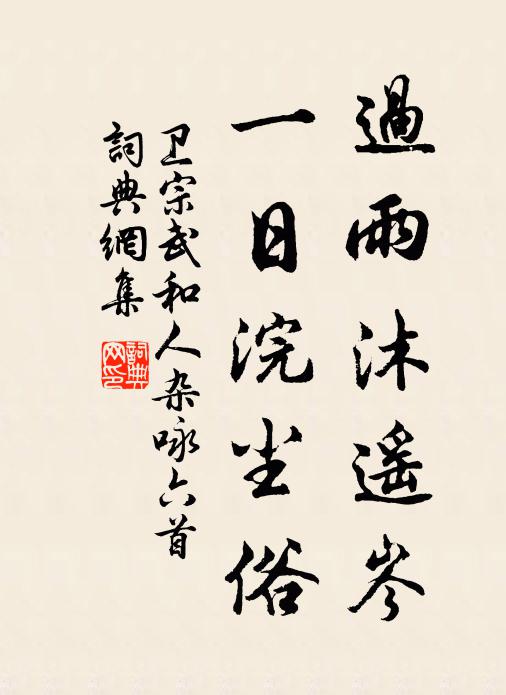 過雨沐遥岑
一日浣尘俗
卫宗武和人杂咏六首
詞典網集
詞典网印